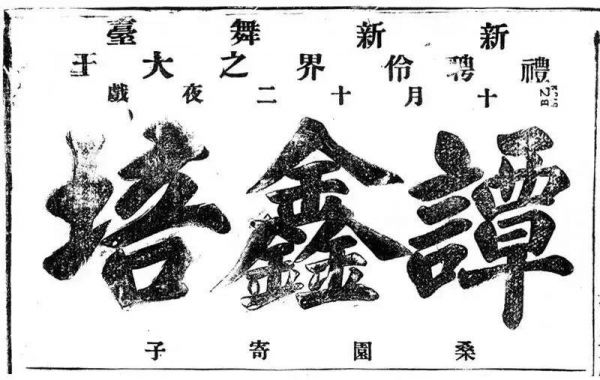 新新舞臺
禮聘伶界之大王
十月十二夜戲
譚鑫培
桑園寄子